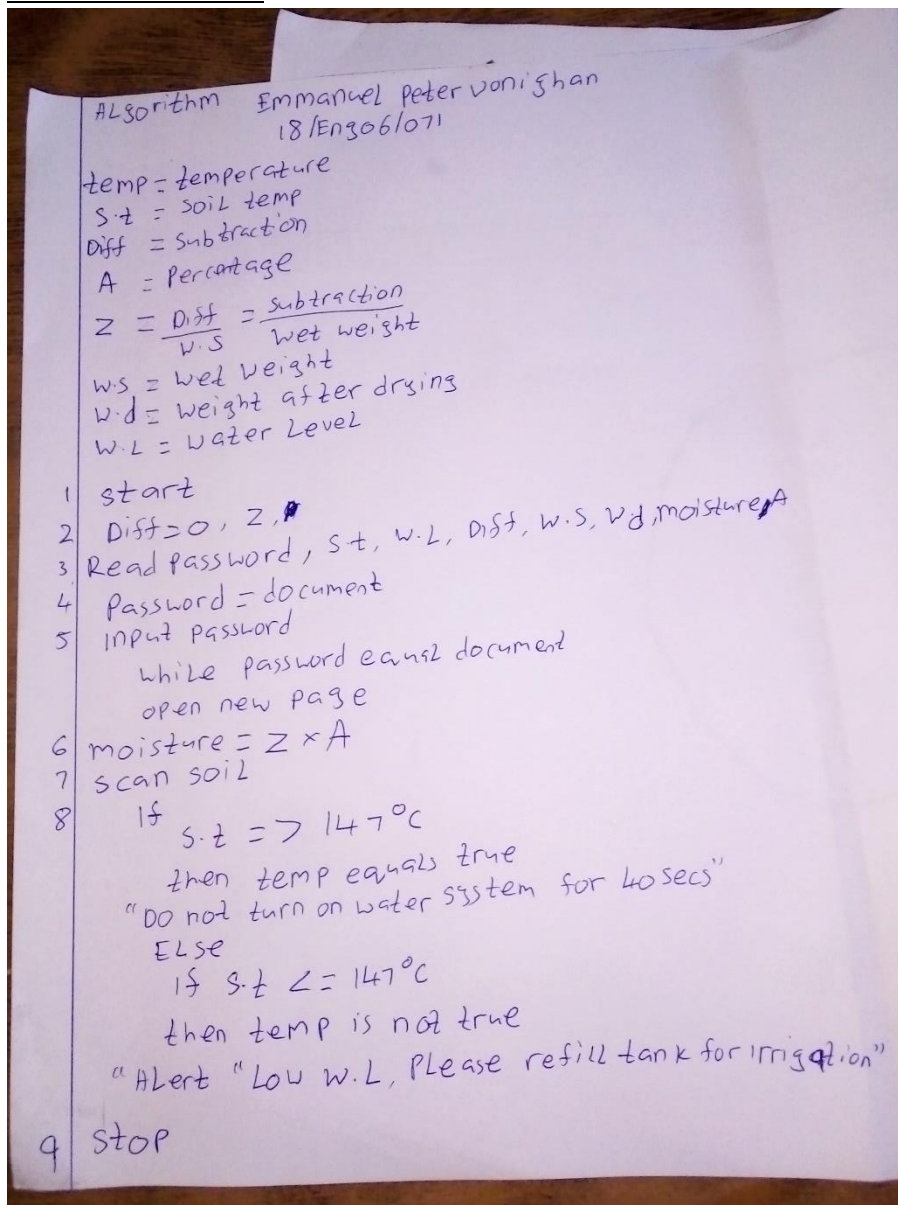 ALgorithm Emmanuel Peter vonighan
18/Eng06/071
temp = temperature
S.t = Soil temp
Diff = Subtraction
A = Percentage
Z = Diff/W.S = Subtraction/Wet weight
W.S = Wet Weight
W.d = Weight after drying
W.L = Water Level
1 Start
2 Diff=0, Z,
3 Read Password, S.t, W.L, Diff, W.S, Wd, moisture, A
4 Password = document
5 input password
while password equal document
open new page
6 moisture = Z x A
7 scan soil
8 If
S.t => 147°C
then temp equals true
"Do not turn on water system for 40secs"
ELse
if S.t <= 147°C
then temp is not true
"ALert "Low W.L, Please refill tank for irrigation"
9 Stop